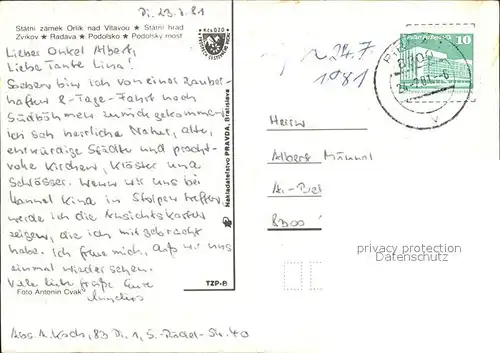 Di. 23.7.81
Státní zámek Orlík nad Vltavou ★ Státní hrad
Zvíkov ★ Radava ★ Podolsko ★ Podolský most
Lieber Onkel Albert,
Liebe Tante Lina!
Soeben bin ich von einer zauber-
haften 2-Tage-Fahrt nach
Südböhmen zurückgekommen.
Ich sah herrliche Natur, alte,
ehrwürdige Städte und pracht-
volle Kirchen, Klöster und
Schlösser. Wenn wir uns bei
in Stolpen treffen,
werde ich die Ansichtskarten
zeigen, die ich mitgebracht
habe. Ich freue mich, daß wir uns
einmal wiedersehen.
Viele liebe Grüße Eure
Foto Antonín Cvak
TZP-B
Abs. A. Koch, 83 Pi. 1, S.-Rädel-Str. 40
Kčs 0,20
Nakladatelství PRAVDA, Bratislava
24.7
1981
10
8300
Herrn
Albert
8300
privacy protection
Datenschutz